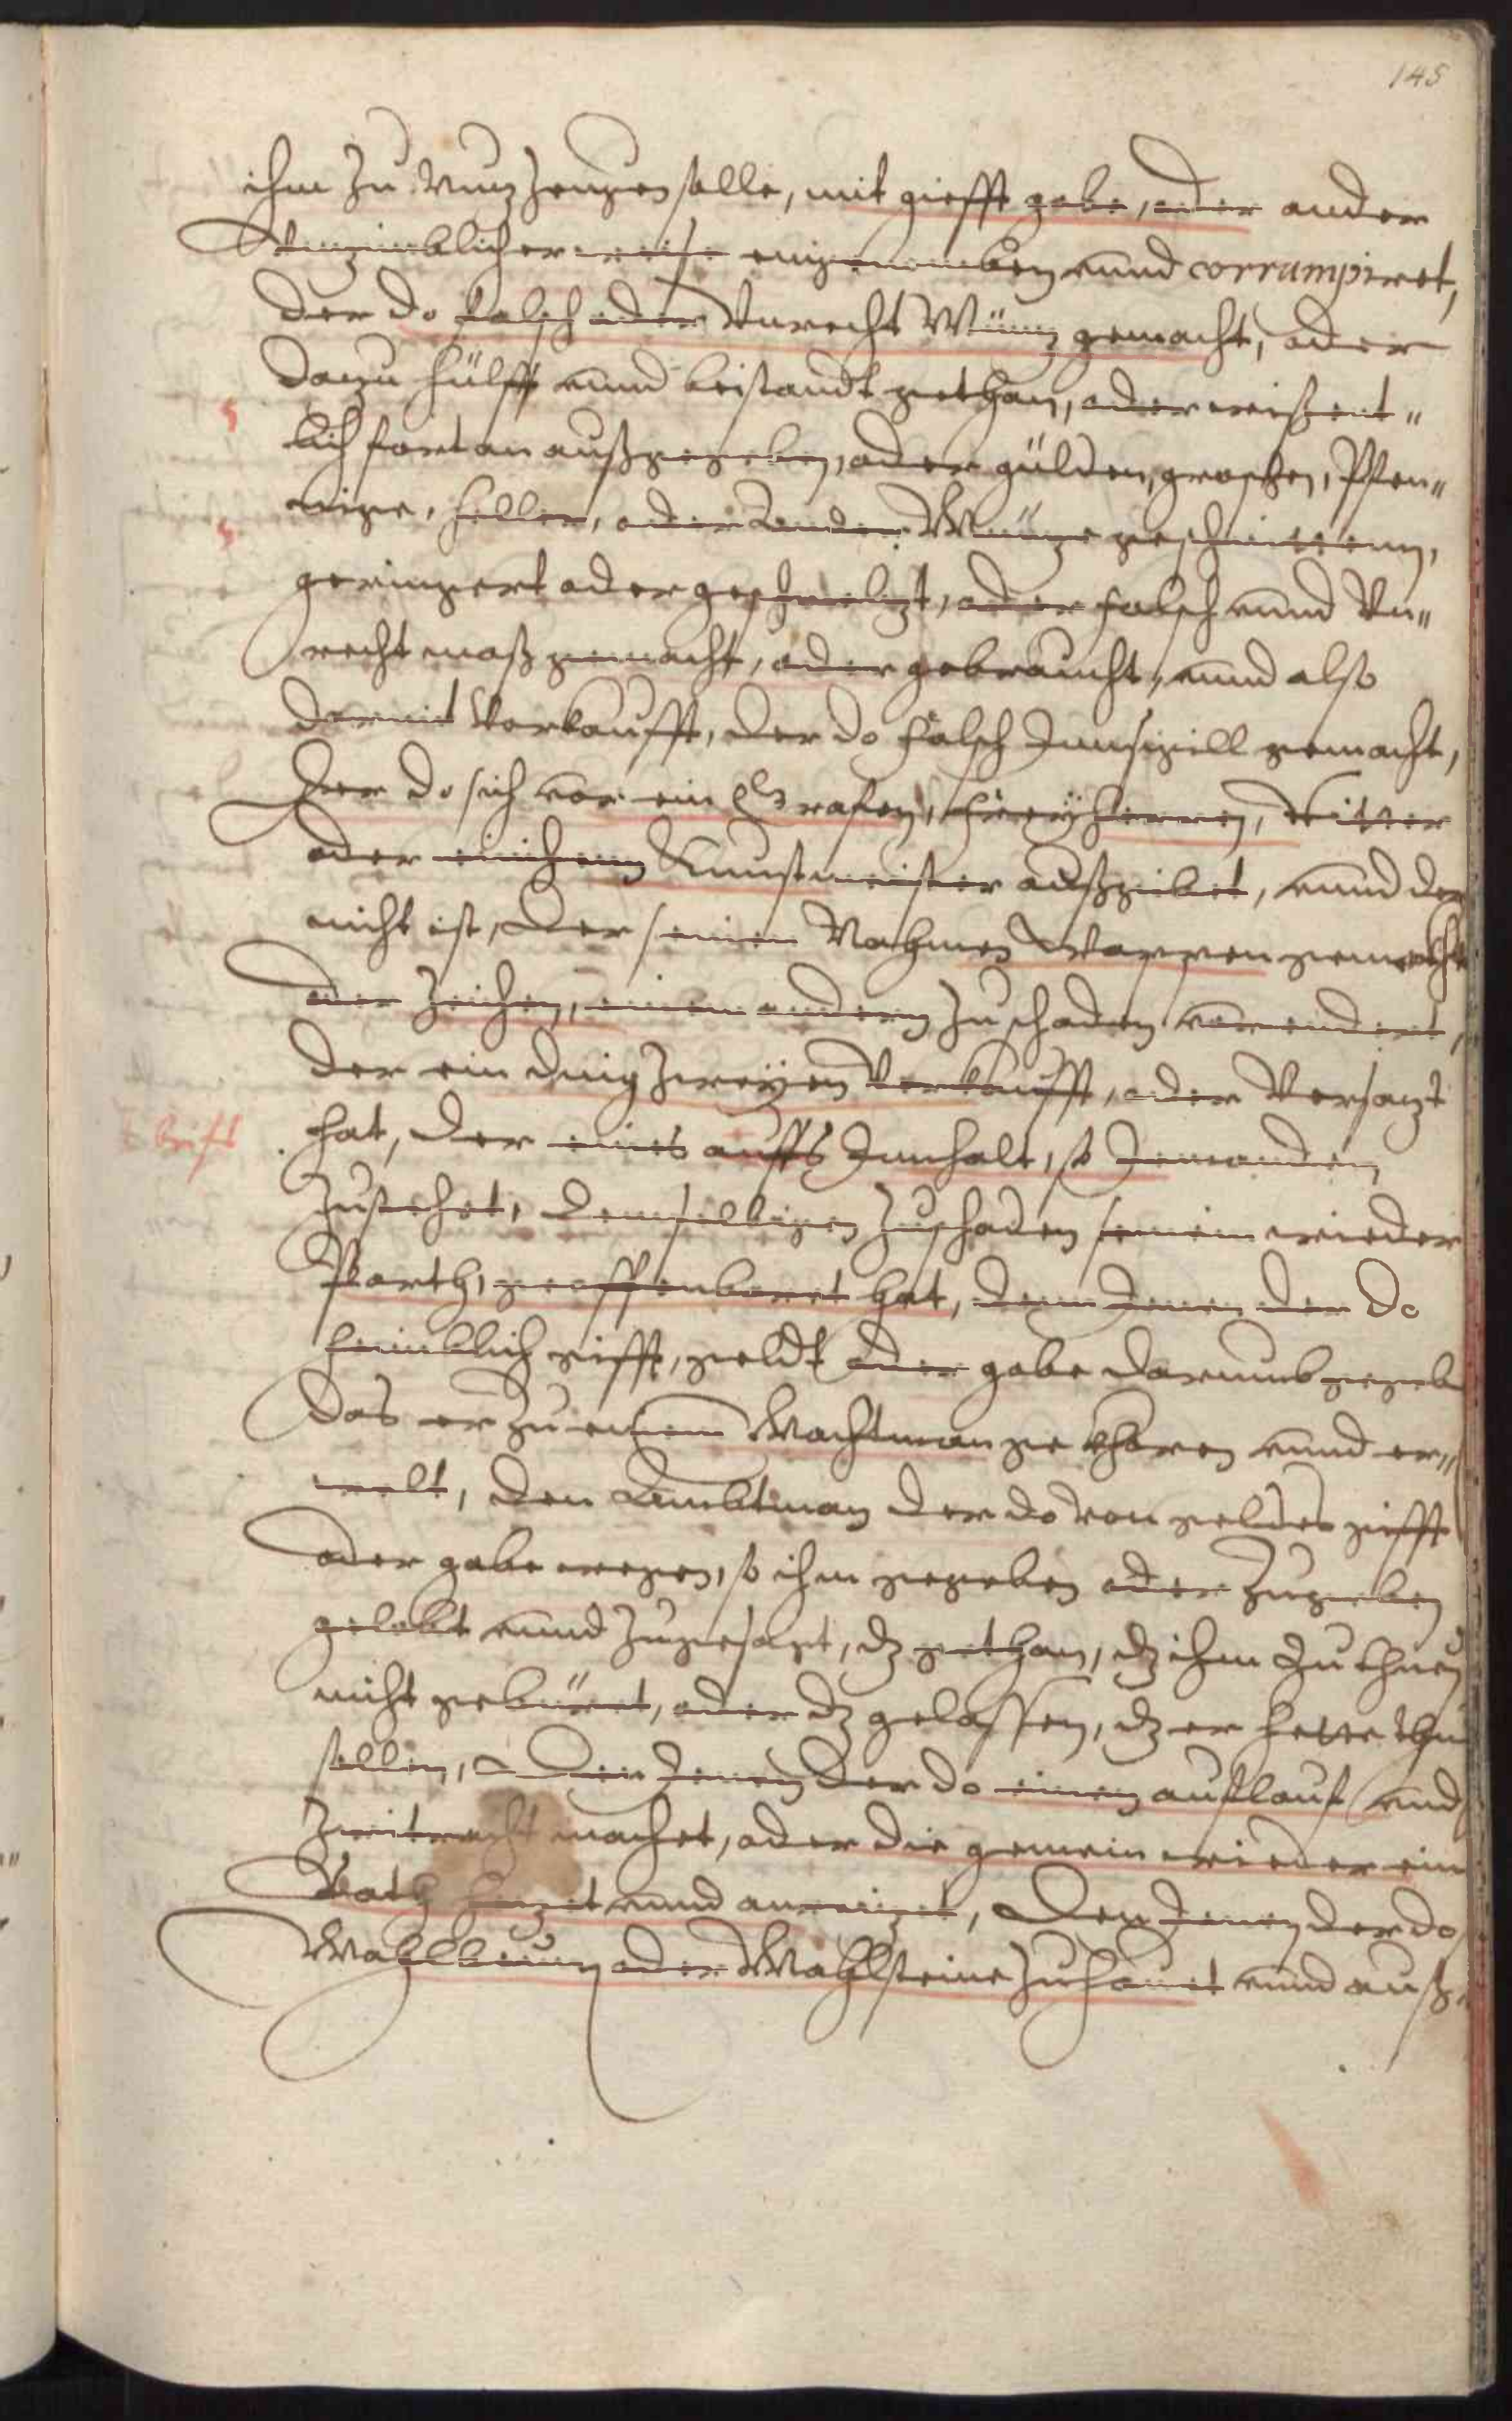 145
ihm zu Vnuz zeugen solle, mit giefft gabe, oder ander
Vnzimblicher weise eingenomben vnnd corrumpiret,
der do falsch oder Vnrecht Müntz gemacht, oder
dazu hülff vnnd beistandt gethan, oder wißent"
lich fortan außgegeben, oder gülden, groschen, Pfen"
nige, heller, oder ander Müntze geschnittenn,
geringert oder geschmeltzt, oder falsch vnnd Vn"
recht maß gemacht, oder gebraucht, vnnd also
dermit Verkaufft, der do falsch Innsigill gemacht,
der do sich vor ein Grafen, freyherren, Ritter
oder einichenn Kunstmeister außgibet, vnnd der
nicht ist, der seinen Nahmen Wappen gemacht
oder zeichen, einem andern zu schaden vorendert,
der ein ding zweyen Verkaufft, oder Versatzt
hat, der eines auffs Innhalt, so Jemanden
brifs
zustehet, demselbigen zuschaden seinem wieder
Parth, geoffenbaret hat, denn Jenen der do
heimblich gifft, geldt oder gabe darumb gegeb
das er zu einem Wachtman gekhoren vnnd er"
welt, den Ambtman der do von geldes gifft
oder gabe wegen, so ihm gegeben oder zugeben
gelobt vnnd zugesagt, dz gethan, dz ihm zu thuen
nicht gebüret, oder dz gelassen, dz er hette thu
sollen, den Jenen der do einen auflauf vnd
zwitracht machet, oder die gemein wieder ein
Rath hetzet vnnd anreitzet, den Jenen der do
Mahlbeum oder Mahlsteine zuhauet vnnd auß"